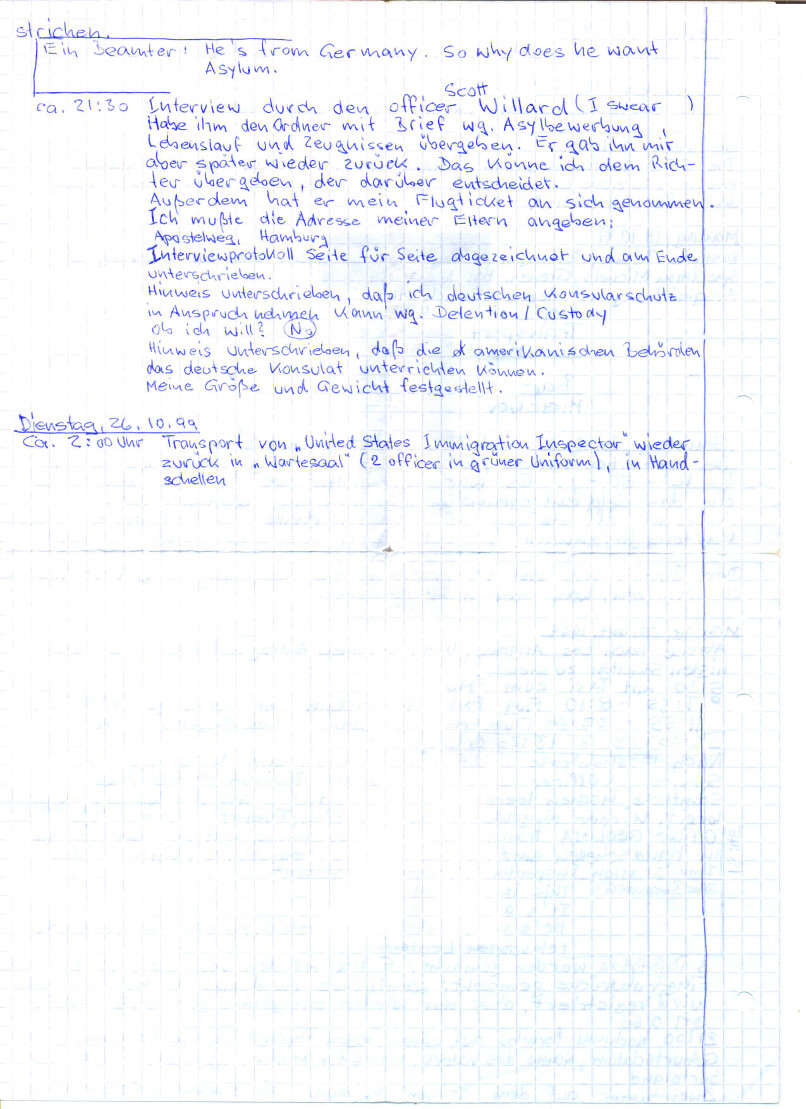 strichen.
Ein Beamter: He's from Germany. So why does he want
Asylum.
Scott
ca. 21:30 Interview durch den officer Willard (I swear )
Habe ihm den Ordner mit Brief wg. Asylbewerbung,
Lebenslauf und Zeugnissen übergeben. Er gab ihn mir
aber später wieder zurück. Das könne ich dem Rich-
ter übergeben, der darüber entscheidet.
Außerdem hat er mein Flugticket an sich genommen.
Ich mußte die Adresse meiner Eltern angeben:
Apostelweg, Hamburg
Interviewprotokoll Seite für Seite abgezeichnet und am Ende
unterschrieben.
Hinweis unterschrieben, daß ich deutschen Konsularschutz
in Anspruch nehmen kann wg. Detention/Custody
Ob ich will? No
Hinweis unterschrieben, daß die amerikanischen Behörden
das deutsche Konsulat unterrichten können.
Meine Größe und Gewicht festgestellt.
Dienstag, 26.10.99
Ca. 2:00 Uhr Transport von „United States Immigration Inspector" wieder
zurück in „Wartesaal" (2 officer in grüner Uniform), in Hand-
schellen